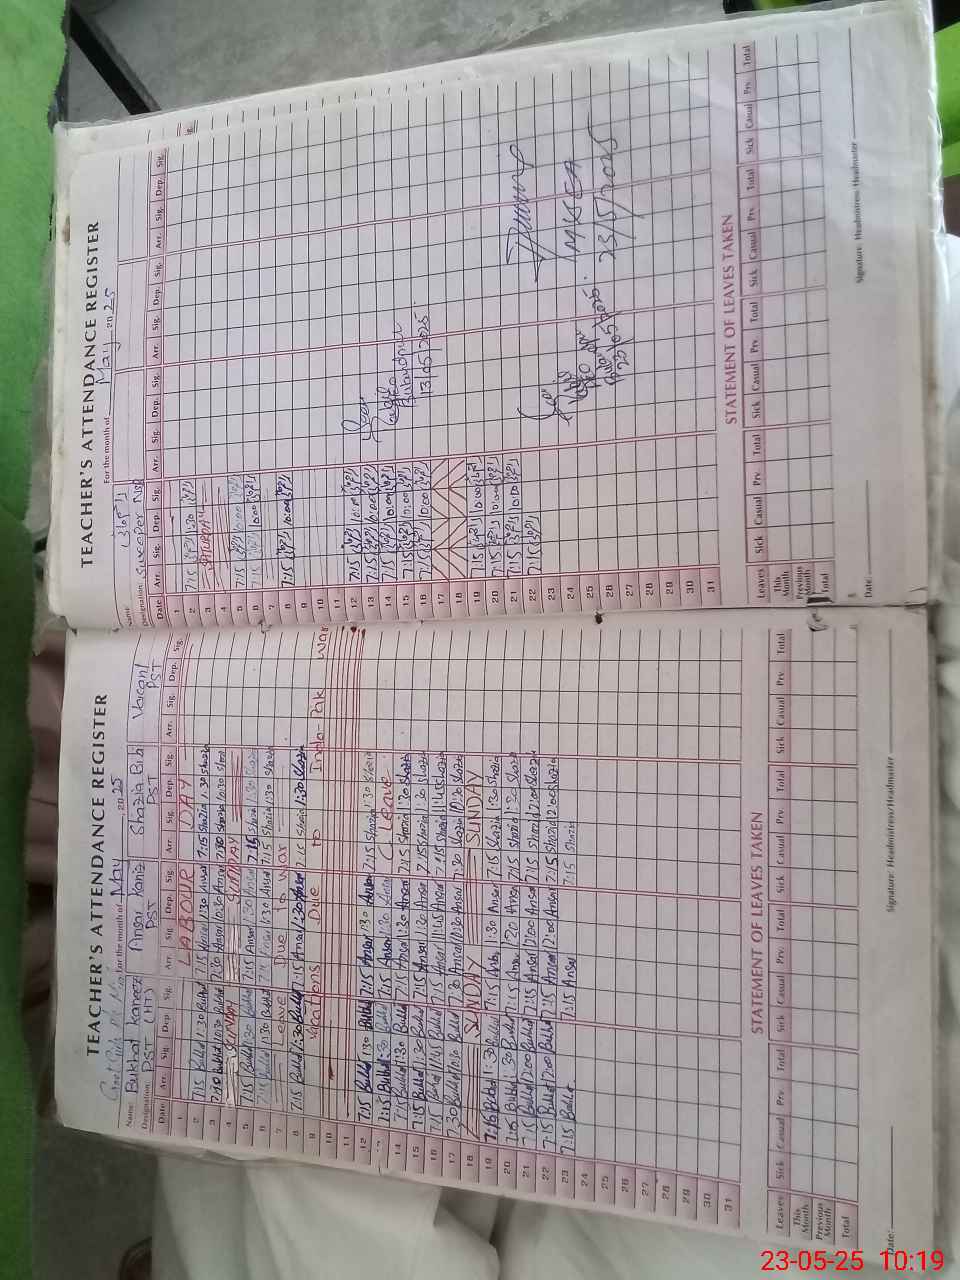 TEACHER'S ATTENDANCE REGISTER
For the month of May 2025
Name: Bukhat kaneez Ansar Kaniz Shazia Bibi Vacant
Designation: PST (HT) PST PST PST
Date Arr. Sig. Dep. Sig. Arr. Sig. Dep. Sig. Arr. Sig. Dep. Sig. Arr. Sig. Dep. Sig.
1 LABOUR DAY
2 7:15 Bukhat 1:30 Bukhat 7:15 Ansar 1:30 Ansar 7:15 Shazia 1:30 Shazia
3 7:30 Bukhat 10:30 Bukhat 7:30 Ansar 10:30 Ansar 7:30 Shazia 10:30 Shazia
4 SUNDAY SUNDAY
5 7:15 Bukhat 1:30 Bukhat 7:15 Ansar 1:30 Ansar 7:15 Shazia 1:30 Shazia
6 7:15 Bukhat 1:30 Bukhat 7:15 Ansar 1:30 Ansar 7:15 Shazia 1:30 Shazia
7 Leave Due to War
8 7:15 Bukhat 1:30 Bukhat 7:15 Ansar 1:30 Ansar 7:15 Shazia 1:30 Shazia
9 Vacations Due to Indo Pak War
10
11
12 7:15 Bukhat 1:30 Bukhat 7:15 Ansar 1:30 Ansar 7:15 Shazia 1:30 Shazia
7:15 Bukhat 1:30 Bukhat 7:15 Ansar 1:30 Ansar C Leave
14 7:15 Bukhat 1:30 Bukhat 7:15 Ansar 1:30 Ansar 7:15 Shazia 1:30 Shazia
15 7:15 Bukhat 1:30 Bukhat 7:15 Ansar 1:30 Ansar 7:15 Shazia 1:30 Shazia
16 7:15 Bukhat 11:45 Bukhat 7:15 Ansar 11:45 Ansar 7:15 Shazia 11:45 Shazia
17 7:30 Bukhat 10:30 Bukhat 7:30 Ansar 10:30 Ansar 7:30 Shazia 10:30 Shazia
18 SUNDAY SUNDAY
19 7:15 Bukhat 1:30 Bukhat 7:15 Ansar 1:30 Ansar 7:15 Shazia 1:30 Shazia
20 7:15 Bukhat 1:30 Bukhat 7:15 Ansar 1:20 Ansar 7:15 Shazia 1:30 Shazia
21 7:15 Bukhat 12:00 Bukhat 7:15 Ansar 12:00 Ansar 7:15 Shazia 12:00 Shazia
22 7:15 Bukhat 12:00 Bukhat 7:15 Ansar 12:00 Ansar 7:15 Shazia 12:00 Shazia
23 7:15 Bukhat 7:15 Ansar 7:15 Shazia
24
25
26
27
28
29
30
31
STATEMENT OF LEAVES TAKEN
Leaves Sick Casual Prv. Total Sick Casual Prv. Total Sick Casual Prv. Total Sick Casual Prv. Total
This Month
Previous Month
Total
Date: Signature: Headmistress/Headmaster
TEACHER'S ATTENDANCE REGISTER
For the month of May 2025
Name:
Designation: Sweeper
Date Arr. Sig. Dep. Sig. Arr. Sig. Dep. Sig. Arr. Sig. Dep. Sig. Arr. Sig. Dep. Sig.
1
2 7:15 1:30
3 SATURDAY
4
5 7:15 10:00
6 7:15 10:00
7
8 7:15 10:00
9
10
11
12 7:15 10:00
13 7:15 10:00
14 7:15 10:00
15 7:15 10:00 13/05/2025
16 7:15 10:00
17
18
19 7:15 10:00
20 7:15 10:00
21 7:15 10:00
22 7:15
23
24
25
26
27
28
29
30
31
MKEA
23/5/2025
23/05/2025
STATEMENT OF LEAVES TAKEN
Leaves Sick Casual Prv. Total Sick Casual Prv. Total Sick Casual Prv. Total Sick Casual Prv. Total
This Month
Previous Month
Total
Date: Signature: Headmistress/Headmaster
23-05-25 10:19